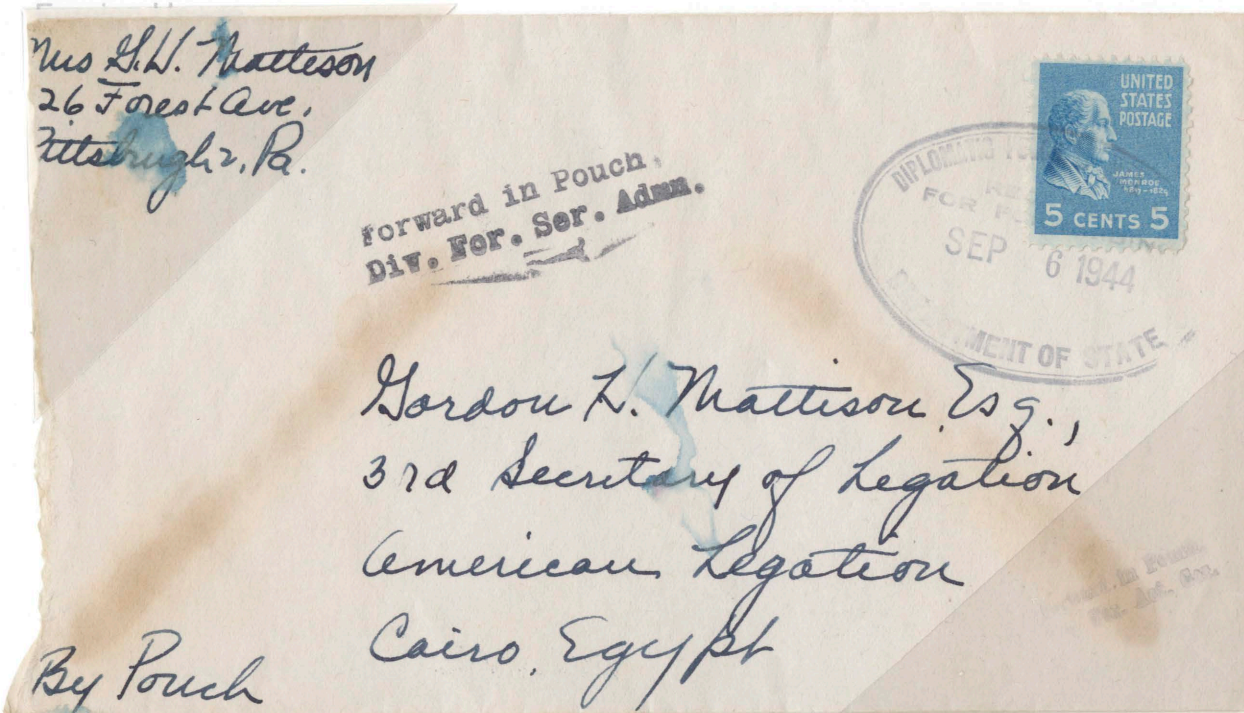 Mrs G.H. Matteson
26 Forest Ave,
Pittsbrugh 2, Pa.
Forward in Pouch,
Div. For. Ser. Admn.
UNITED
STATES
POSTAGE
JAMES
MONROE
5 CENTS 5
DIPLOMATIC
FOR
SEP 6 1944
DEPARTMENT OF STATE
Gordon H. Mattison, Esq.,
3rd Secretary of Legation
American Legation
Cairo, Egypt
in Pouch
By Pouch